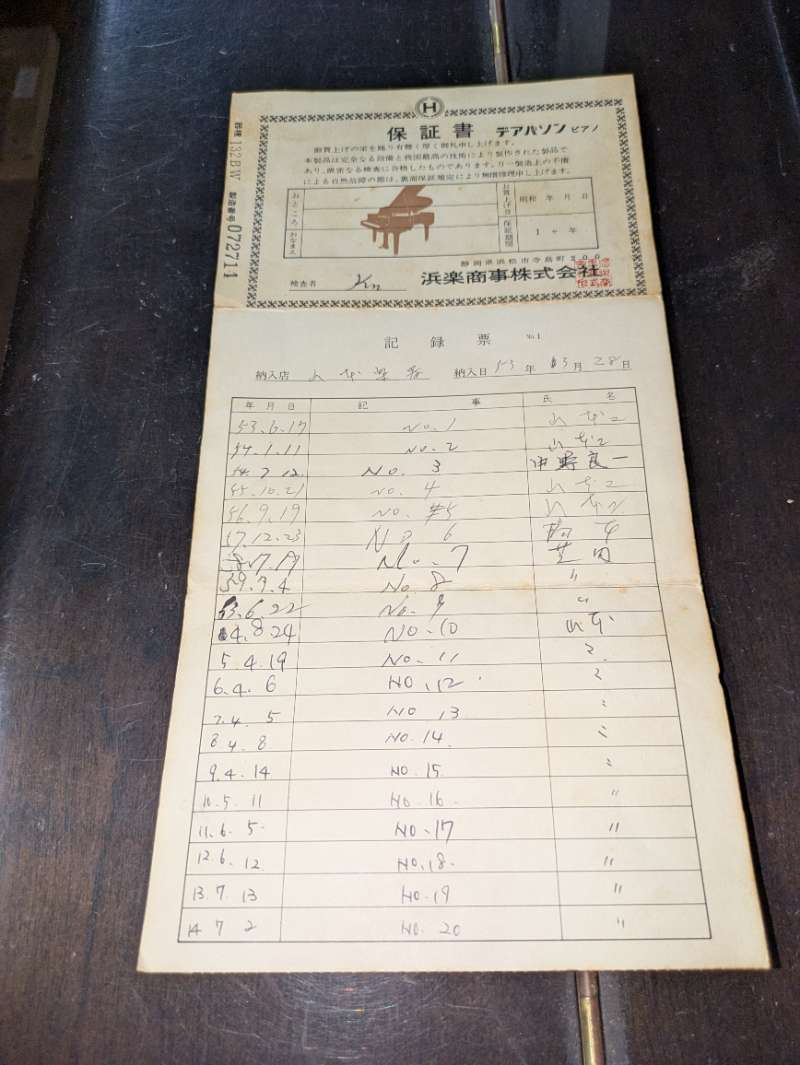 H
保証書 デアパソン ピアノ
御買上げの栄を賜り有難く厚く御礼申し上げます。
本製品は完全なる設備と我国最高の技術により製作された製品で
あり、厳密なる検査に合格したものであります。万一製造上の不備
による自然故障の節は、裏面保証規定により無償修理申し上げます。
おところ
おなまえ
お買上げ日 昭和 年 月 日
保証期間 1ヶ年
静岡県浜松市寺島町200
検査者
浜楽商事株式会社
器種 132BW 製造番号 072711
記録票 No.1
納入店 納入日 53年 3月 28日
年月日 記事 氏名
53.6.17 No.1
54.1.11 No.2
54.7.12 No.3 中野良一
55.10.21 No.4
56.9.19 No.5
57.12.23 No 6
58.7.19 No.7 芝田
59.3.4 No.8 〃
63.6.22 No.9 〃
4.8.24 No.10
5.4.19 No.11 〃
6.4.6 No.12 〃
7.4.5 No 13 〃
8.4.8 No.14 〃
9.4.14 No.15 〃
10.5.11 No.16 〃
11.6.5 No.17 〃
12.6.12 No.18 〃
13.7.13 No.19 〃
14 7 2 No.20 〃